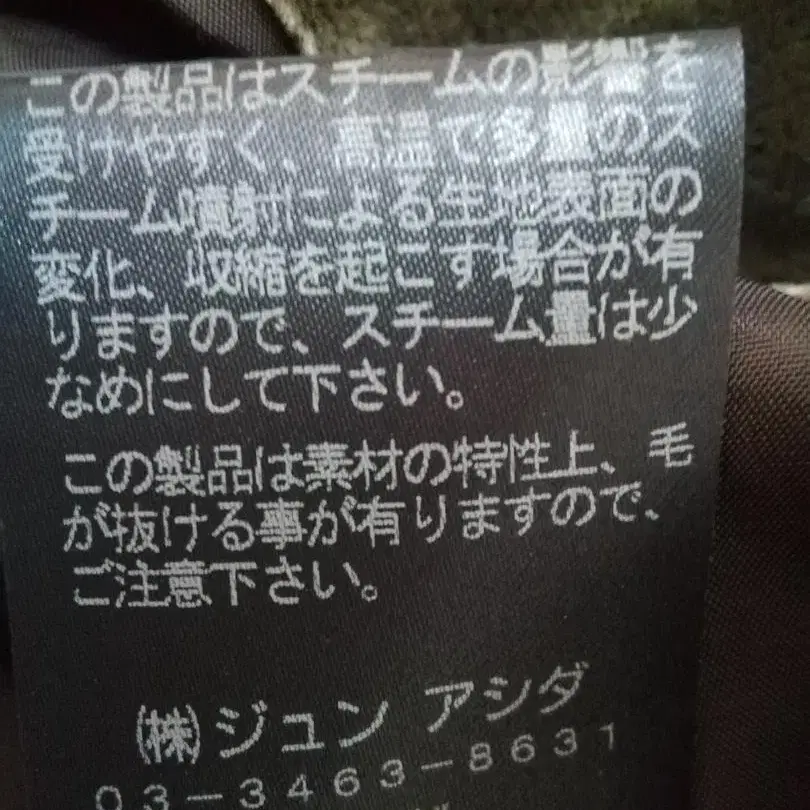 この製品はスチームの影響を
受けやすく、高温で多量のス
チーム噴射による生地表面の
変化、収縮を起こす場合が有
りますので、スチーム量は少
なめにして下さい。
この製品は素材の特性上、毛
が抜ける事が有りますので、
ご注意下さい。
㈱ジュン アシダ
03-3463-8631